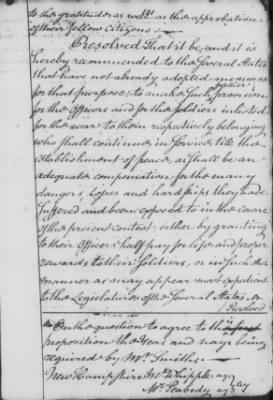 to the gratitude as well as the approbation
of their fellow Citizens.
Resolved That it be and it is
hereby recommended to the several States
that have not already adopted measures
for that purpose, to make such further provision
for the Officers and for the Soldiers inlisted
for the war to them respectively belonging
who shall continue in service till the
establishment of peace, as shall be an
adequate compensation for the many
dangers, hopes and hardships they have
suffered and been exposed to in the course
of the present contest, either by granting
to their Officers half pay for life and proper
rewards to their Soldiers, or in such other
manner as may appear most expedient
to the Legislatures of the several States.
Resolved
On the question to agree to the first
proposition the Yeas and nays being
required by Mr. Smith
New Hampshire Mr. Whipple ay
Mr. Peabody ay ay